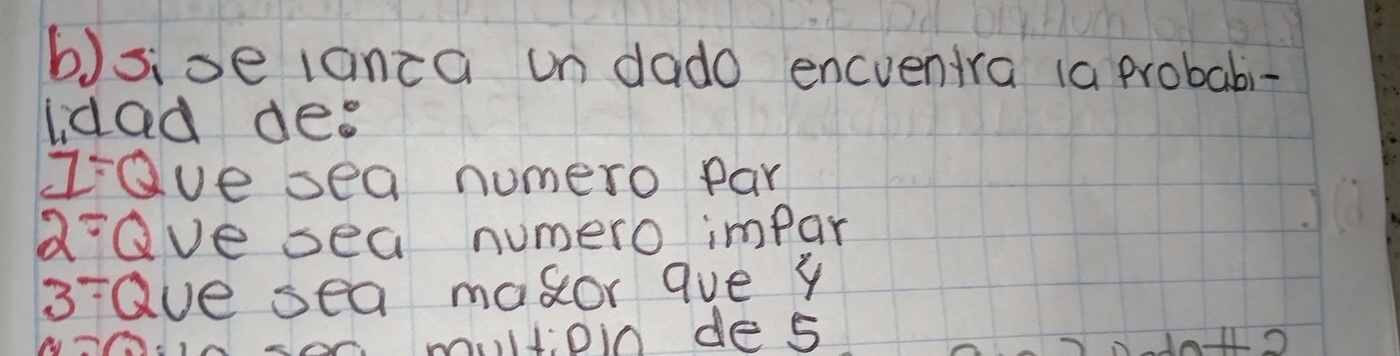 b) si se lanza un dado encuentra la probabi-
lidad de:
1- Que sea numero par
2- Que sea numero impar
3- Que sea mayor que 4
sea multiplo de 5